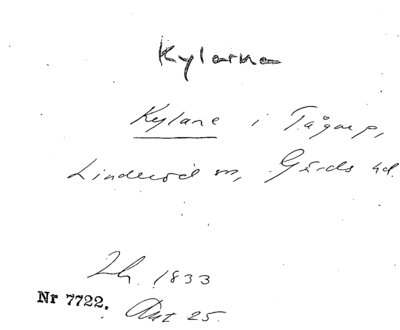 Kylarna
Kylane i Tågarp,
Linderöd sn, Gärds hd.
Lh. 1833
Nr 7722. Akt 25.